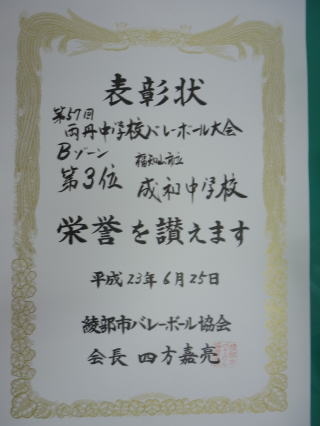 表彰状
第57回
両丹中学校バレーボール大会
Bゾーン
第3位
福知山市立
成和中学校
栄誉を讃えます
平成23年6月25日
綾部市バレーボール協会
会長 四方嘉亮